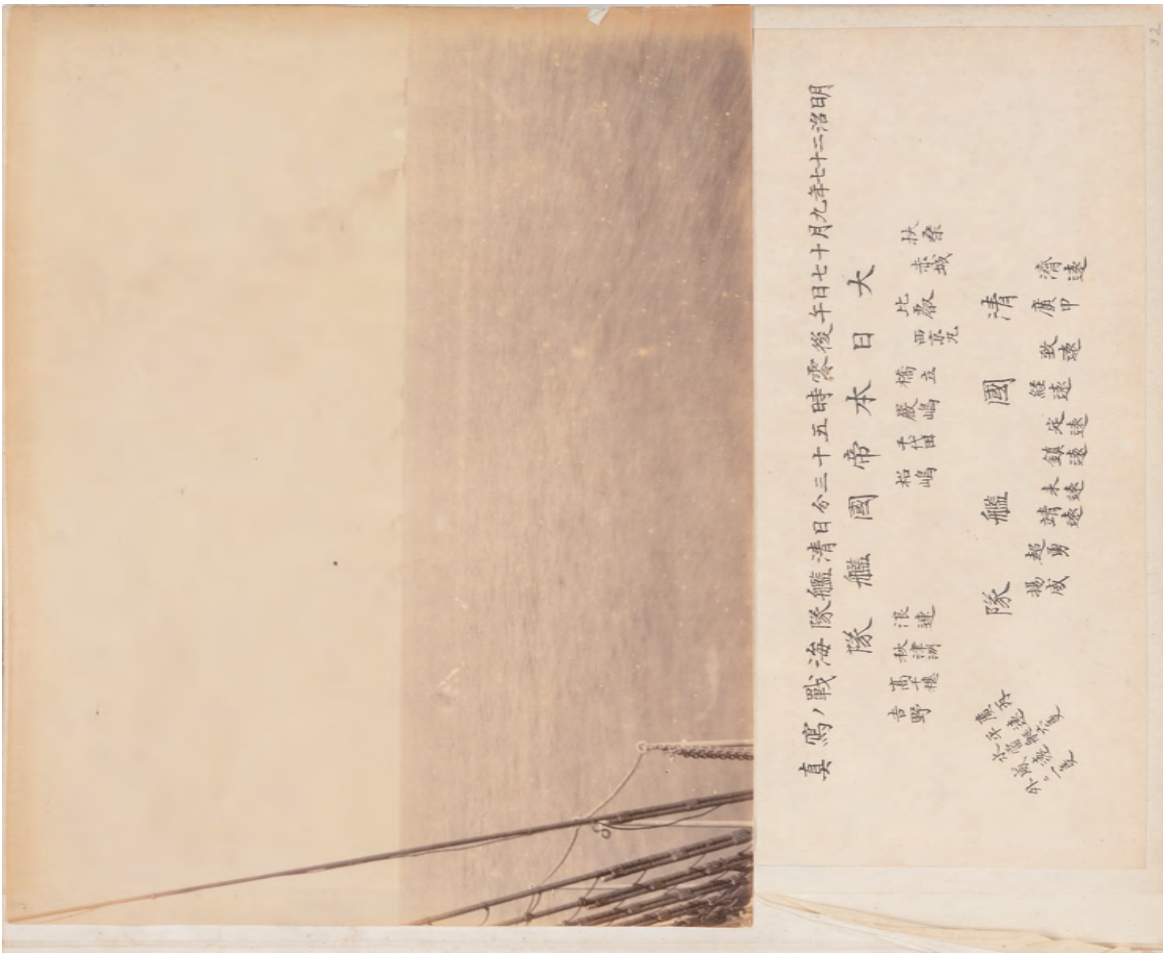 明治二十七年九月十七日午後零時五十三分日清艦隊海戰ノ寫真
大日本帝國艦隊
扶桑 赤城 比叡 西京丸 橋立 嚴嶋 千代田 松嶋 浪速 秋津洲 高千穂 吉野
清國艦隊
濟遠 廣甲 致遠 経遠 定遠 鎮遠 来遠 靖遠 超勇 揚威
32